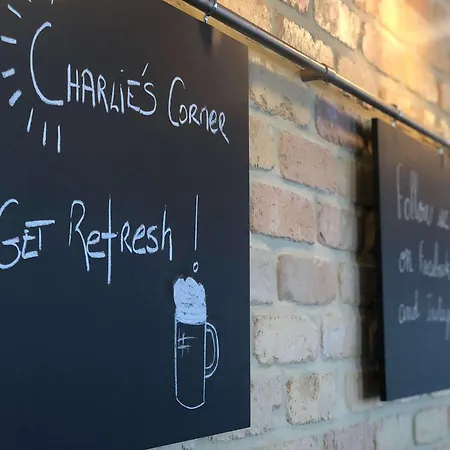 CHARLIE'S CORNER
GET Refresh!
#
Follow
on Facebook
and